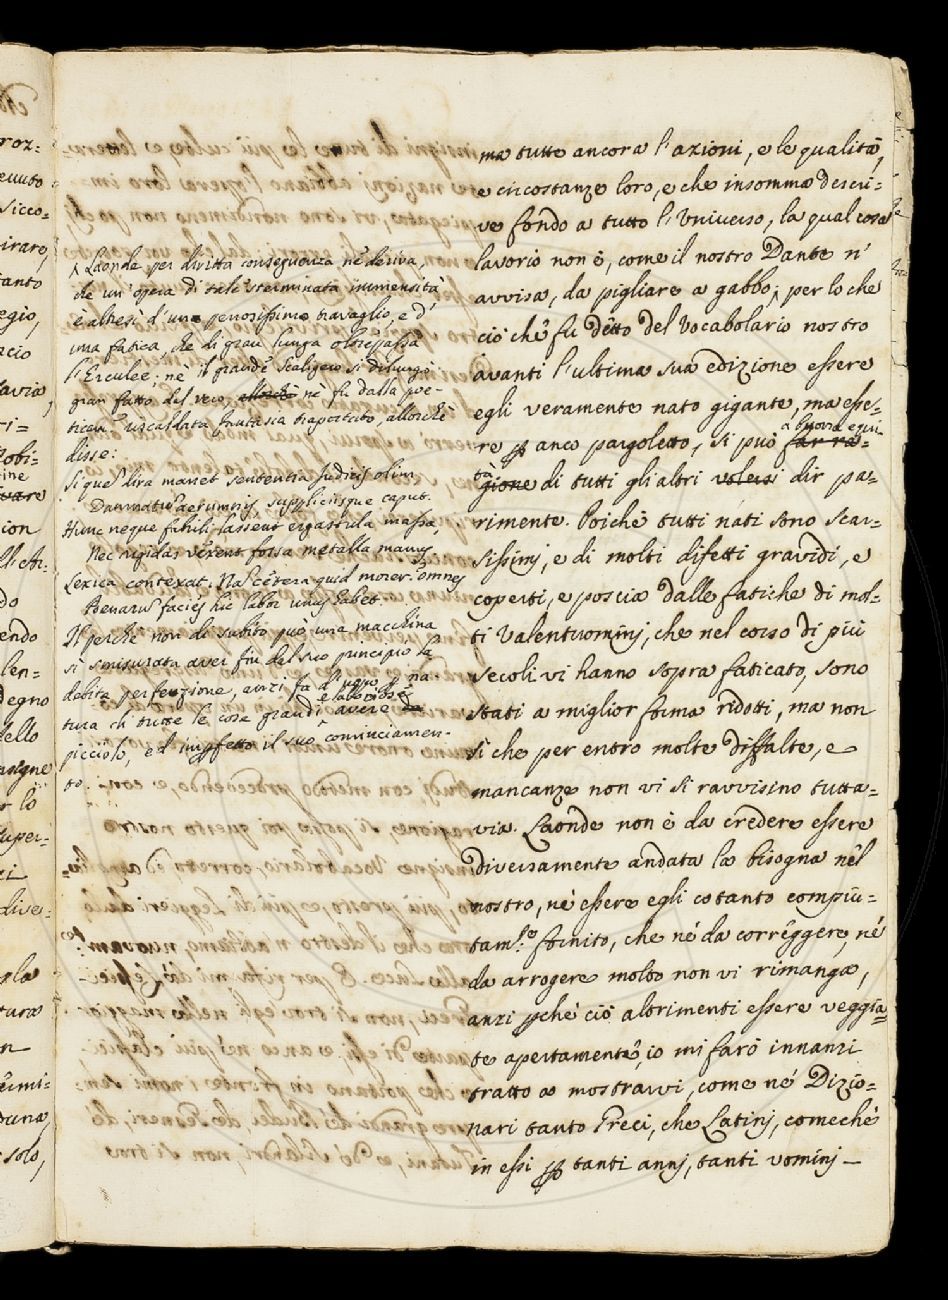 ma tutte ancora l'azioni, e le qualità,
e circostanze loro, e che insomma descri-
ve fondo a tutto l'Vniverso, la qual cosa
lavorio non è, come il nostro Dante n'
avvisa, da pigliare a gabbo; per lo che
ciò che fu detto del Vocabolario nostro
avanti l'ultima sua edizione essere
egli veramente nato gigante, ma esse-
re p anco pargoletto, si può far ra- a buona equi-
gione tà di tutti gli altri volersi dir pa-
rimente. Poichè tutti nati sono scar-
sissimj, e di molti difetti gravidi, e
coperti, e poscia dalle fatiche di mol-
ti Valentuominj, che nel corso di più
secoli vi hanno sopra faticato, sono
stati a miglior forma ridotti, ma non
sì che per entro molte diffalte, e
mancanze non vi si ravvisino tutta-
via. Laonde non è da credere essere
diversamente andata la bisogna nel
nostro, nè essere egli cotanto compiu-
tam.te fornito, che nè da correggere, nè
da arrogere molto non vi rimanga,
anzi pchè ciò altrimenti essere veggia-
te apertamente, io mi farò innanzi
tratto a mostrarvi, come ne' Dizio-
nari tanto Greci, che Latinj, comechè
in essi p tanti annj, tanti vominj —
Laonde per diritta conseguenza ne deriva,
che un'opera di tale sterminata immensità
è altresì d'una penosissima travaglio, e d'
una fatica, che di gran lunga oltrepassa
l'Erculee: nè il grande Scaligero si dilungò
gran fatto dal vero allorchè nè fu dalla poe-
tica riscaldata fantasia trasportato, allorchè
disse:
Si quem dira manet sententia Judicis olim
Damnatum aerumnis, suppliciisque caput.
Hunc neque fabrili lassent ergastula massa,
Nec rigidas vexent fossa metalla manus
Lexica contexat. Nam cetera quid moror? omnes
Penarum facies hic labor unus habet.
Il perchè non di subito può una macchina
sì smisurata aver fin dal suo principio la
debita perfezione, anzi fa d'uopo, e na-
tura di tutte le cose grandi e laboriose avere da
picciolo, ed impfetto il suo cominciamen-
to.